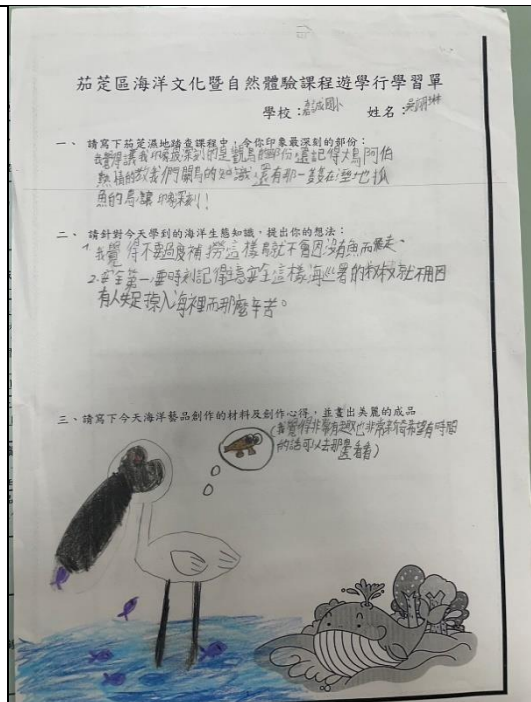 茄萣區海洋文化暨自然體驗課程遊學行學習單
學校：國小 姓名：
一、 請寫下茄萣濕地踏查課程中，令你印象最深刻的部份：
我覺得讓我印象最深刻的是觀鳥的部份，還記得大鳥阿伯
熱積的教我們關鳥的知識，還有那一隻在溼地抓
魚的鳥讓 印象深刻！
二、請針對今天學到的海洋生態知識，提出你的想法：
1.我覺得不要過度補撈這樣鳥就不會因沒有魚而離走、
2.安全第一要時刻記得安全這樣海巡署的叔叔就不用因
有人失足掉入海裡而那麼辛苦。
三、請寫下今天海洋藝品創作的材料及創作心得，並畫出美麗的成品
(我覺得非常有趣也非常新奇希望有時間
的話可以去那邊看看)